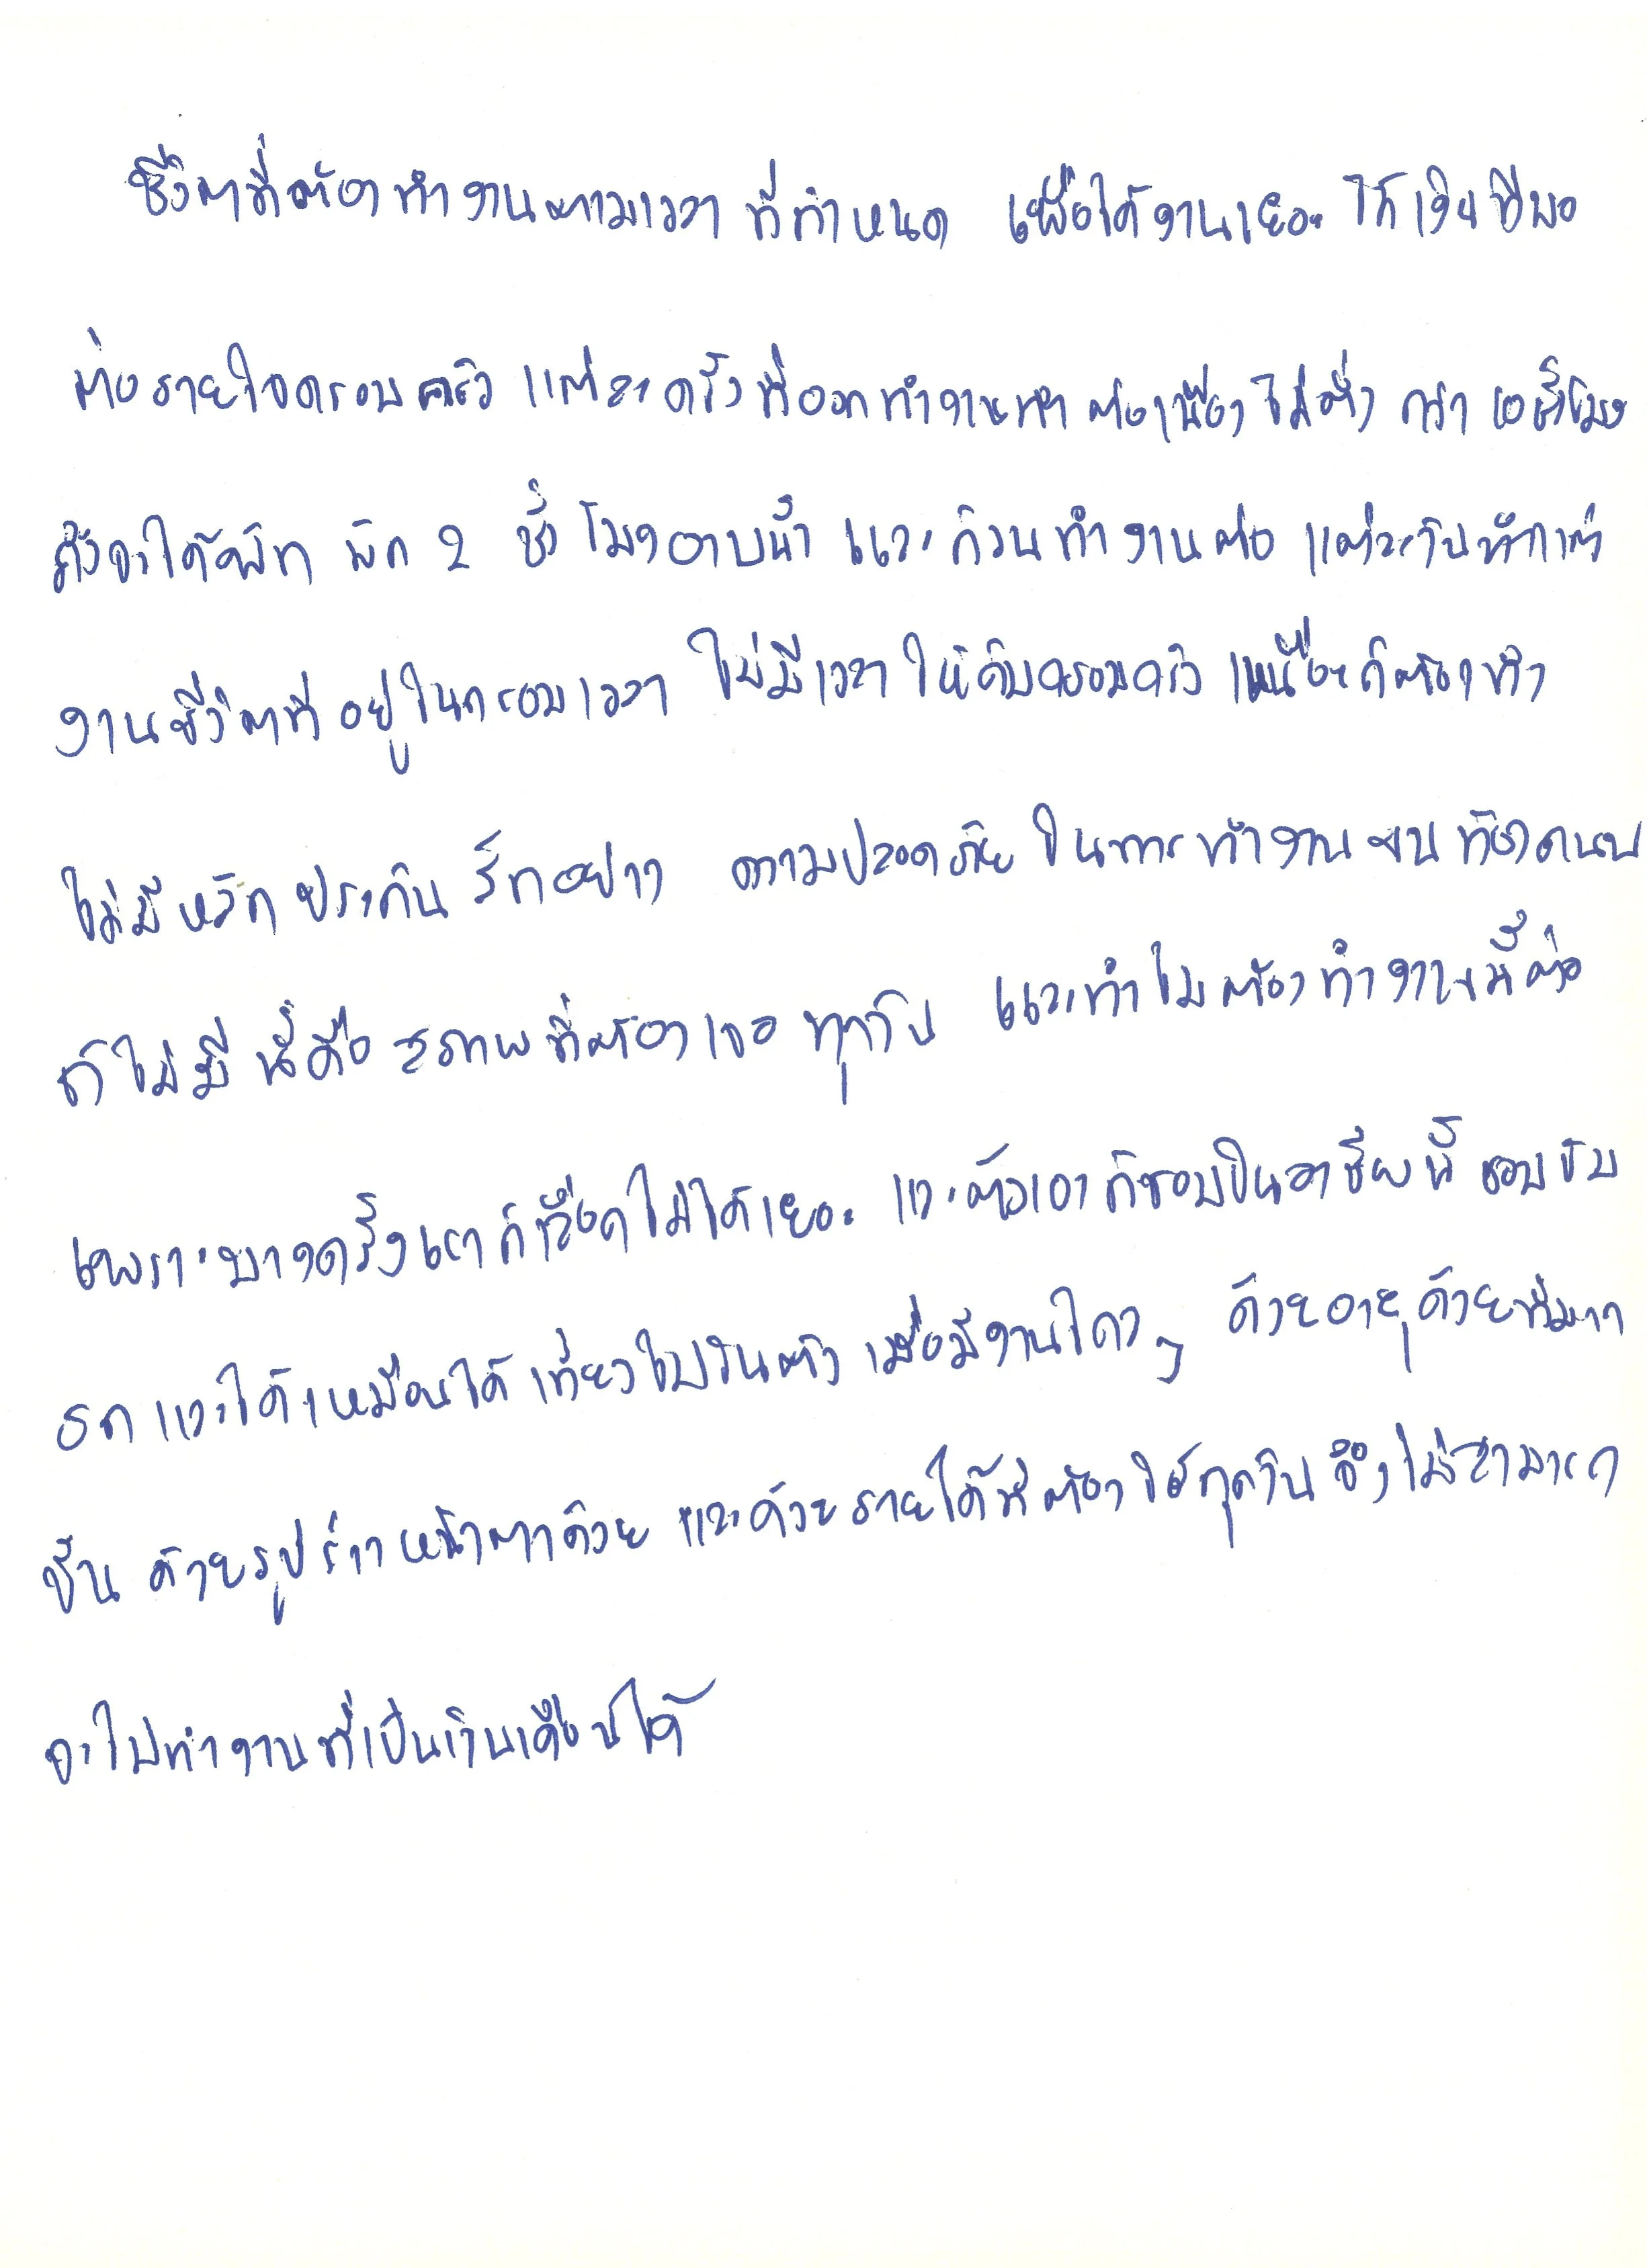 ชีวิตที่ต้องทำงานตามเวลา ที่กำหนด เพื่อได้งานเยอะ ได้เงินที่พอ
ต่อรายใจครอบครัว แต่ละครั้งที่ออกทำงานหา ต่อเนื่อง ไม่ต่ำ กว่า ชั่วโมง
ถึงจะได้พัก พัก 2 ชั่วโมงอาบน้ำ และก้วนทำงานต่อ แต่ละวันทำแต่
งานชีวิตที่อยู่ในกรอบเวลา ไม่มีเวลาให้กับครอบครัว เหนื่อยก็ต้องทำ
ไม่มีหลักประกันสักอย่าง ความปลอดภัยในการทำงานบนท้องถนน
ก็ไม่มี นี้คือสภาพที่ต้องเจอทุกวัน และทำไมต้องทำงานนี้ต่อ
เพราะบางครั้งเราก็เลือกไม่ได้เยอะ และตัวเองก็ชอบในอาชีพนี้ ชอบขับ
รถและได้เหมือนได้เที่ยวไปในตัว เมื่อมีงานไกลๆ ด้วยอายุด้วยที่มาก
ขึ้น ด้วยรูปร่างหน้าตาด้วย และด้วยรายได้ที่ต้องใช้ทุกวัน จึงไม่สามารถ
จะไปทำงานที่เป็นเงินเดือนได้